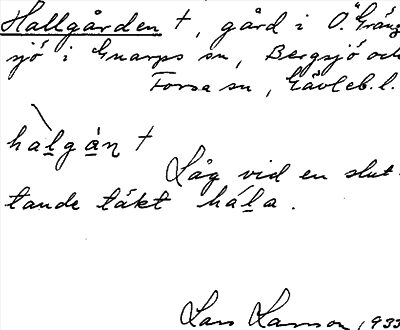 Hallgården †, gård i Ö. Gräng
sjö i Gnarps sn, Bergsjö och
Forsa sn, Gävleb. l.
halgàn †
Låg vid en slut-
tande täkt hála.
Lars Larson, 1933